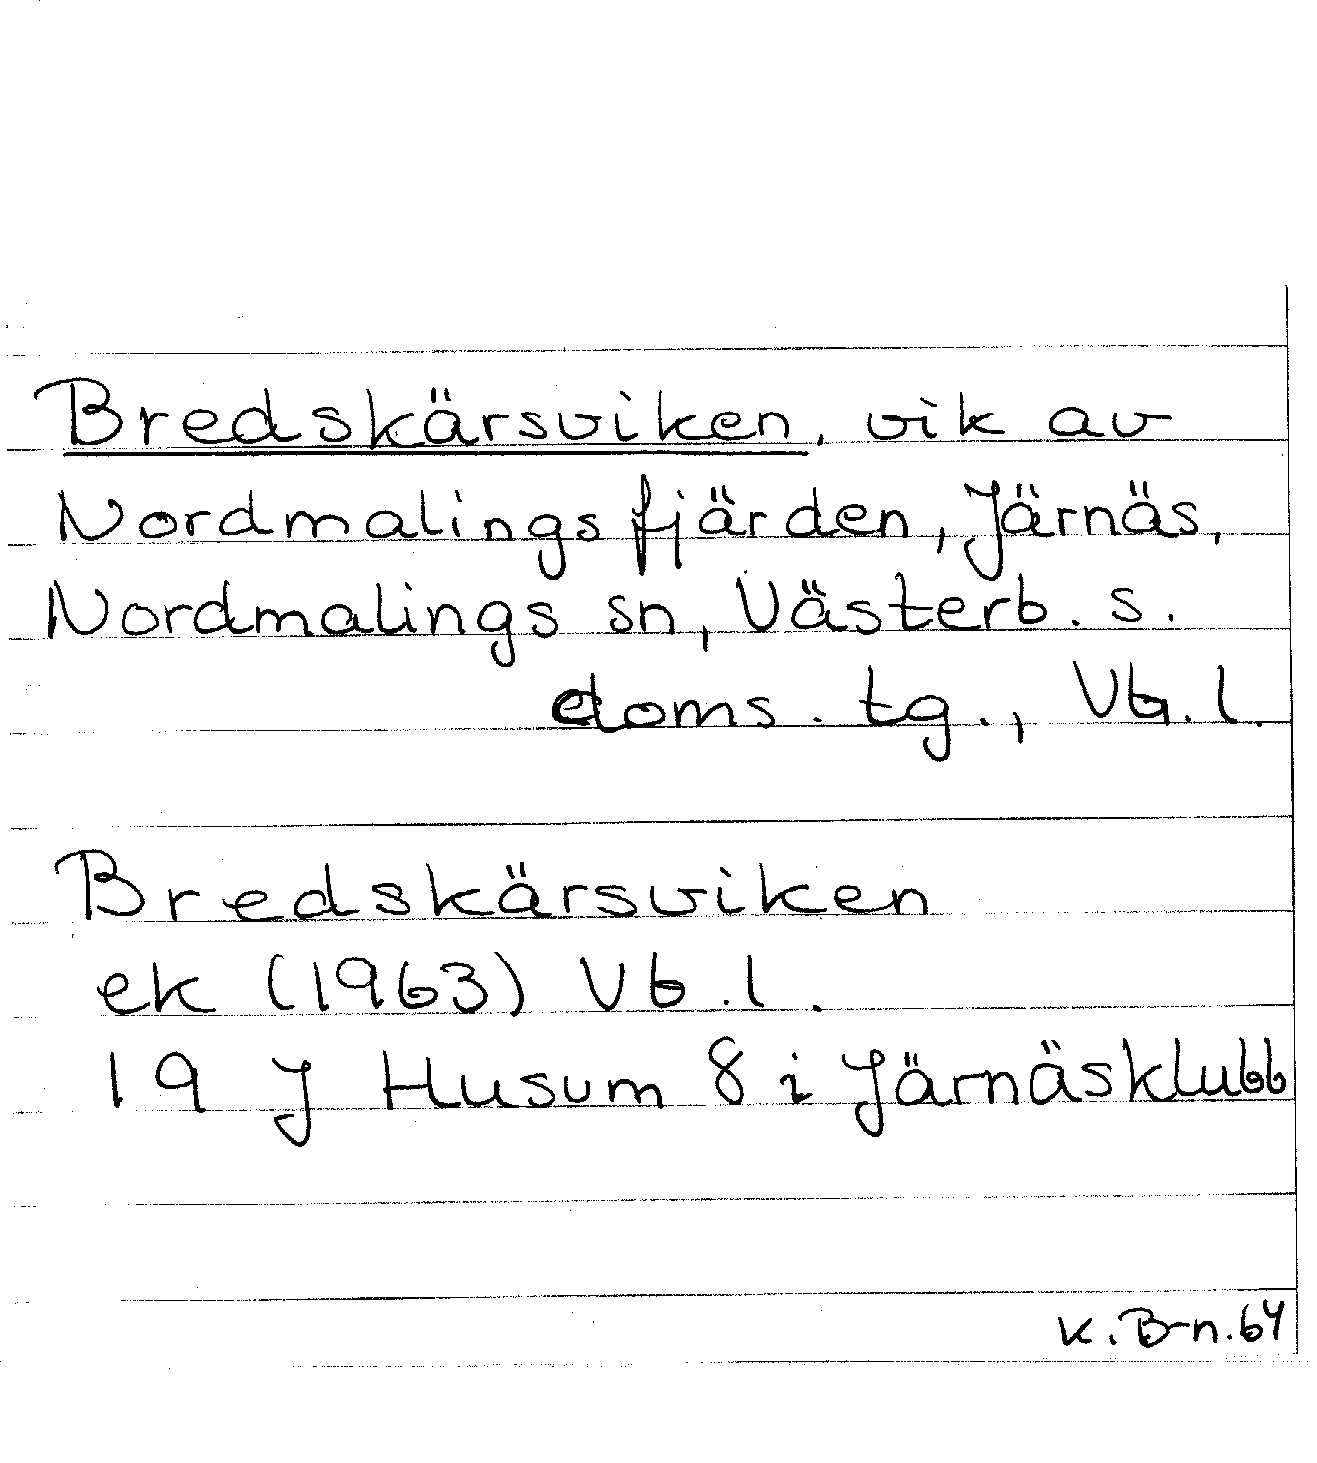 Bredskärsviken, vik av
Nordmalingsfjärden, Järnäs,
Nordmalings sn, Västerb. s.
doms. tg., Vb. l.
Bredskärsviken
ek (1963) Vb. l.
19 J Husum 8 i Järnäsklubb
K. B-n. 64